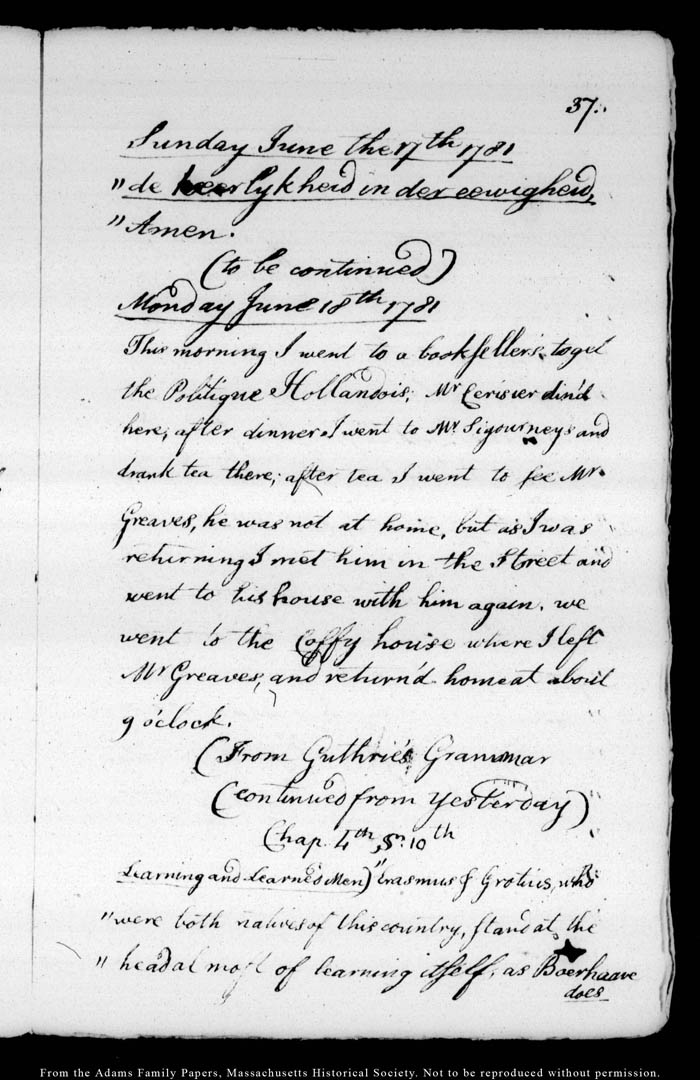 37.
Sunday June the 17th 1781
" de heerlykheid in der eewigheid,
" Amen.
(to be continued)
Monday June 18th 1781
This morning I went to a bookseller's to get
the Politique Hollandois; Mr Cerisier din'd
here; after dinner I went to Mr. Sigourneys and
drank tea there; after tea I went to see Mr.
Greaves, he was not at home, but as I was
returning I met him in the Street and
went to his house with him again. we
went to the Coffy house where I left
Mr Greaves, and return'd home at about
9 o'clock.
(From Guthrie's Grammar
(continued from yesterday)
Chap. 4th, Sn. 10th
Learning and Learned Men) "Erasmus & Grotius, who
" were both natives of this country, stand at the
" head almost of learning itself, as Boerhaave
does
From the Adams Family Papers, Massachusetts Historical Society. Not to be reproduced without permission.